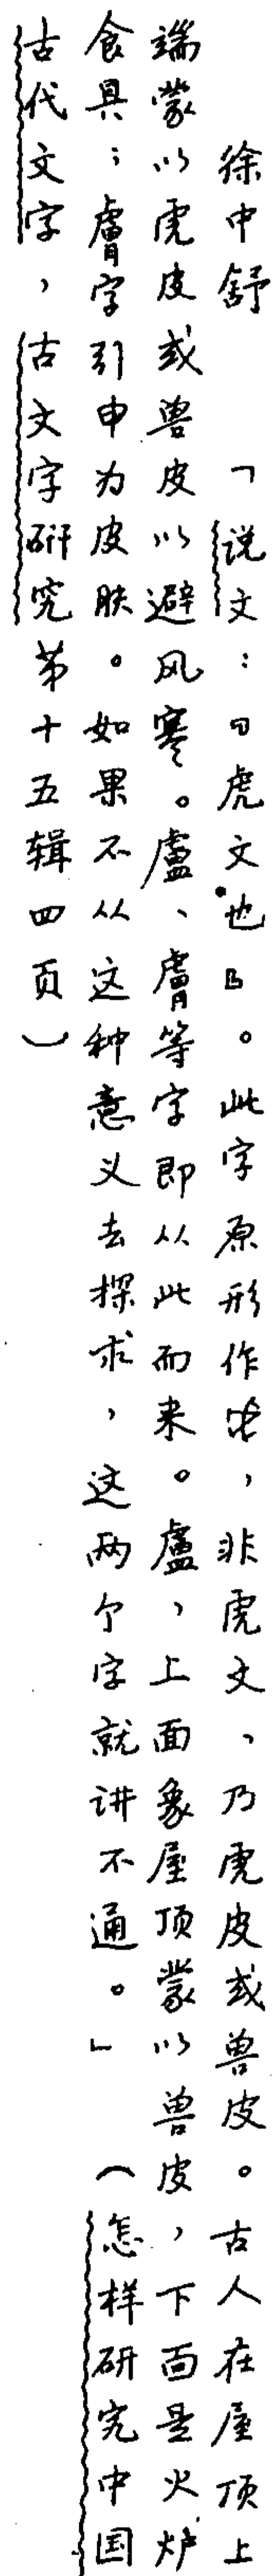 徐中舒　「说文：『虎文也』。此字原形作虍，非虎文，乃虎皮或兽皮。古人在屋顶上
端蒙以虎皮或兽皮以避风寒。盧、膚等字即从此而来。盧，上面象屋顶蒙以兽皮，下面是火炉
食具；膚字引申为皮肤。如果不从这种意义去探求，这两个字就讲不通。」（怎样研究中国
古代文字，古文字研究第十五辑四页）